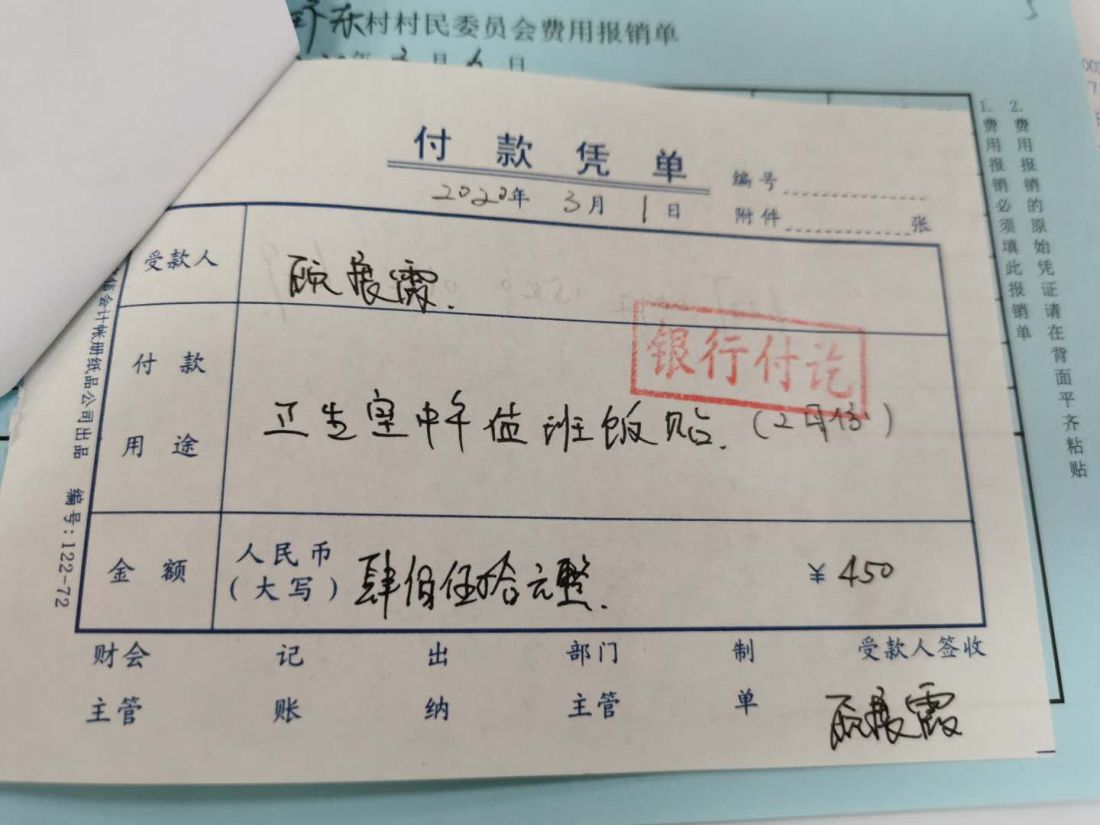 村村民委员会费用报销单
年3月6日
付款凭单
2020年3月1日
编号
附件 张
受款人 顾展霞.
银行付讫
付款用途 卫生室中午值班饭贴.(2月份)
金额 人民币(大写) 肆佰伍拾元整. ¥450
财会主管 记账 出纳 部门主管 制单 受款人签收
顾展霞
会计帐册纸品公司出品 编号:122-72
1. 费用报销必须填此报销单
2. 费用报销的原始凭证请在背面平齐粘贴